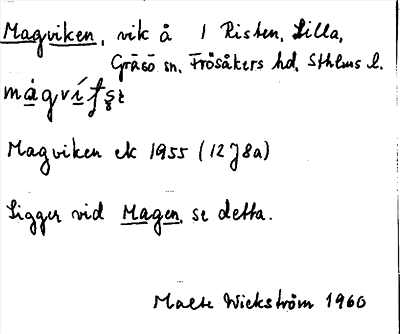 Magviken, vik å 1 Risten, Lilla,
Gräsö sn. Frösåkers hd, Sthlms l.
Magviken ek 1955 (12J8a)
Ligger vid Magen, se detta.
Malte Wickström 1960